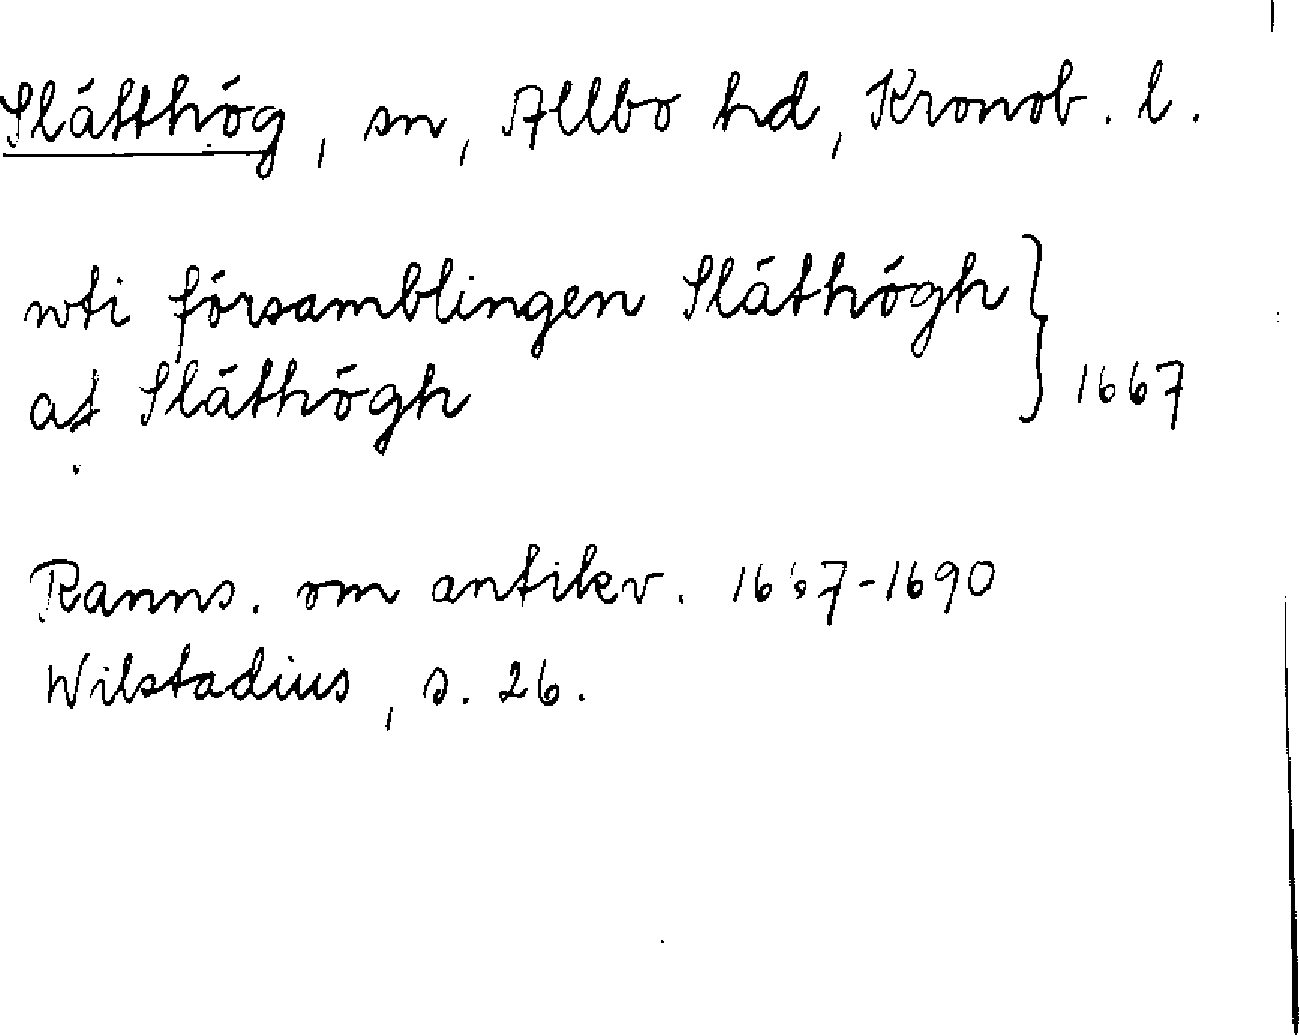 Slätthög, sn, Allbo hd, Kronob. l.
wti församblingen Släthögh } 1667
at Släthögh
Ranns. om antikv. 1667-1690
Wilstadius, s. 26.